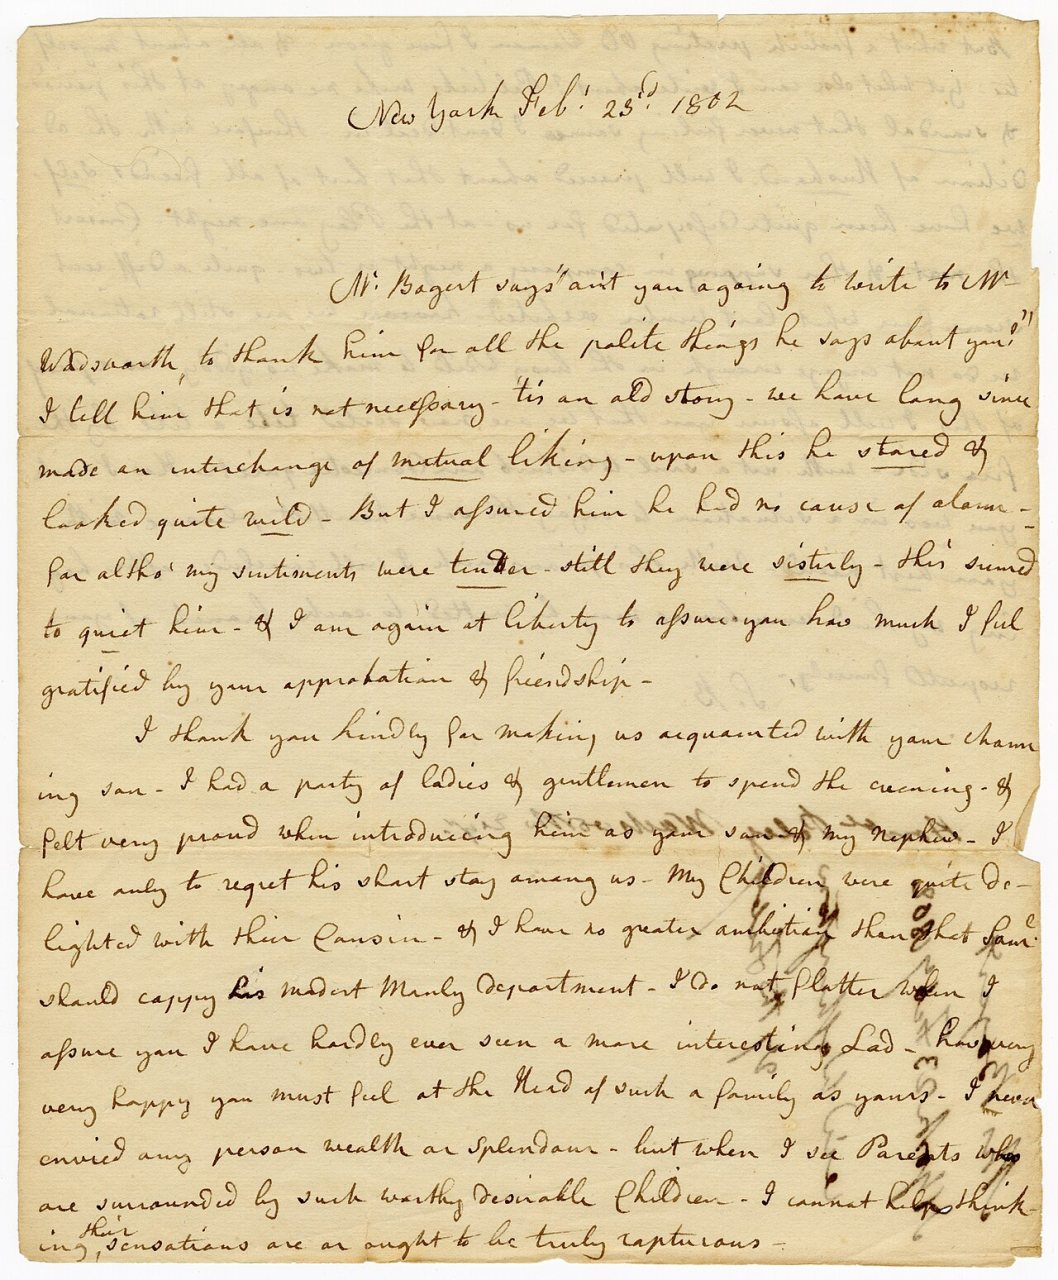 New York Feb.' 23.rd 1802
Mr. Bogert says "ain't you agoing to write to Mr
Wadsworth, to thank him for all the polite things he says about you?"
I tell him that is not necessary - 'tis an old story - we have long since
made an interchange of mutual liking - upon this he stared &
looked quite wild - But I assured him he had no cause of alarm -
for altho' my sentiments were tender - still they were sisterly - this seemed
to quiet him - & I am again at liberty to assure you how much I feel
gratified by your approbation & friendship -
I thank you kindly for making us acquainted with your charm
ing son - I had a party of ladies & gentlemen to spend the evening - &
felt very proud when introducing him as your son & my nephew - I
have only to regret his short stay among us - My Children were quite de-
lighted with their Cousin - & I have no greater ambition than that Saml
should coppy his modest Manly department - I do not flatter when I
assure you I have hardly ever seen a more interesting Lad - how very
very happy you must feel at the Head of such a family as yours - I never
envied any person wealth or splendour - but when I see Parents who
are surrounded by such worthy desirable Children - I cannot help think-
ing their sensations are or ought to be truly rapturous -